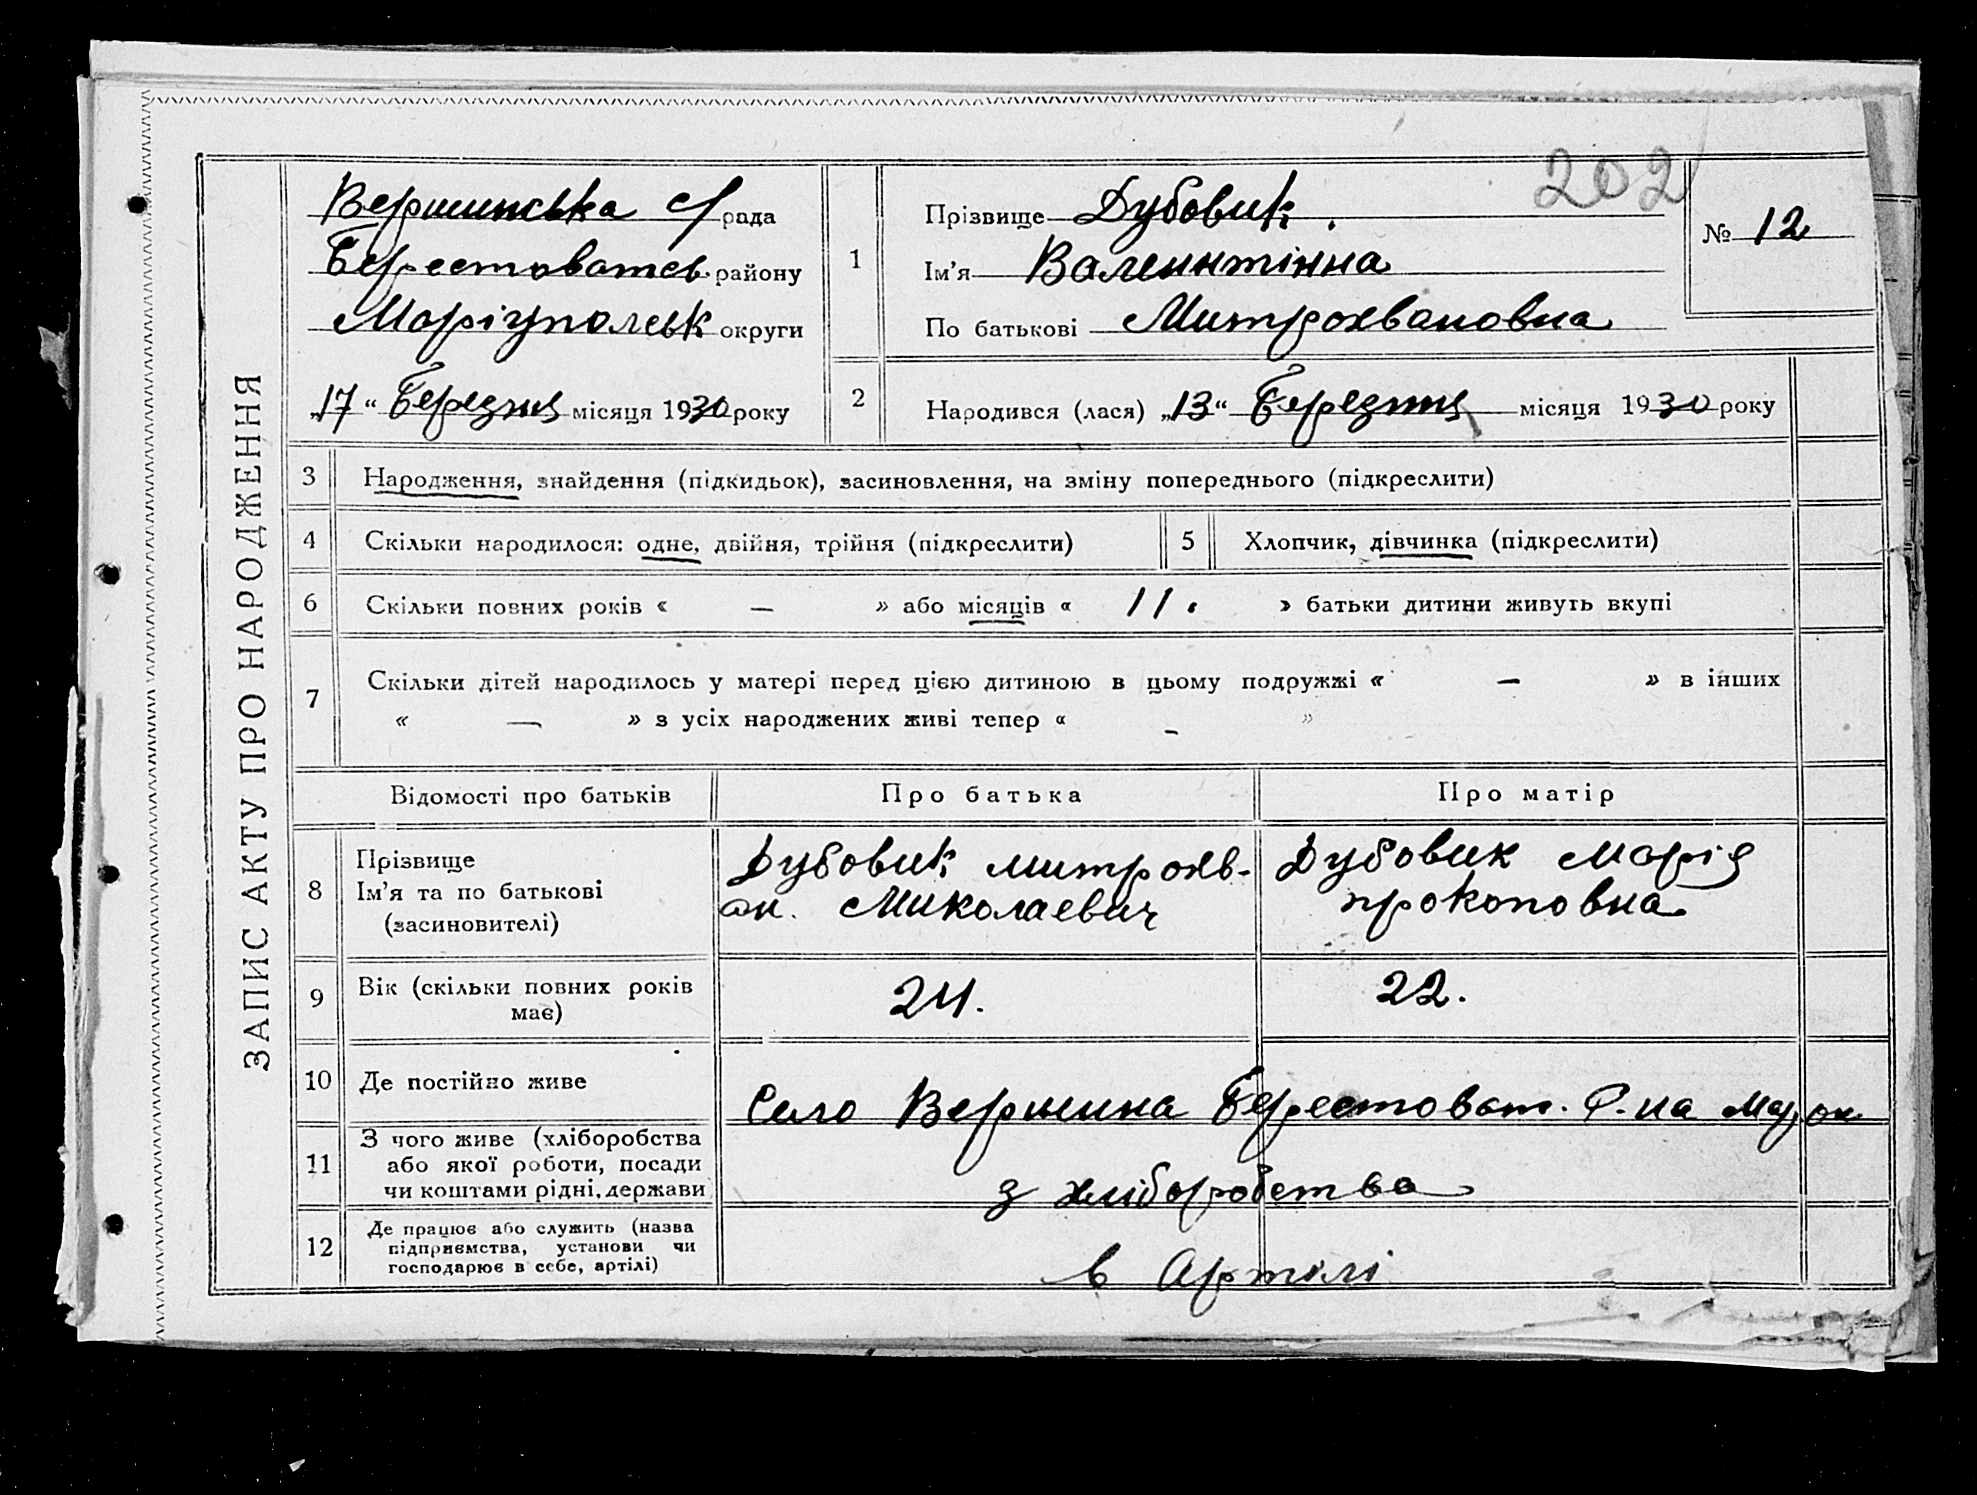 202
ЗАПИС АКТУ ПРО НАРОДЖЕННЯ
Вершинська с/рада
Берестоватсь. району
Маріупольськ округи
„17“ Березня місяця 1930 року
1
Прізвище Дубовик.
Ім’я Валентінна
По батькові Митрохвановна
№ 12
2
Народився (лася) „13“ Березня місяця 1930 року
3 Народження, знайдення (підкидьок), засиновлення, на зміну попереднього (підкреслити)
4 Скільки народилося: одне, двійня, трійня (підкреслити)
5 Хлопчик, дівчинка (підкреслити)
6 Скільки повних років « — » або місяців « 11. » батьки дитини живуть вкупі
7 Скільки дітей народилось у матері перед цією дитиною в цьому подружжі « — » в інших
« — » з усіх народжених живі тепер « - »
Відомості про батьків Про батька Про матір
8
Прізвище
Ім’я та по батькові
(засиновителі)
Дубовик митрохв-
ан. Миколаевич
Дубовик Марія
прокоповна
9
Вік (скільки повних років
має)
24. 22.
10 Де постійно живе
Село Вершина Берестоват. Р-на Мар, ок
11
З чого живе (хліборобства
або якої роботи, посади
чи коштами рідні, держави
з хліборобства
12
Де працює або служить (назва
підприємства, установи чи
господарює в себе, артілі)
в Артілі